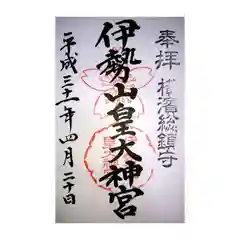 奉拝
横濱総鎮守
伊勢山皇大神宮
平成三十一年四月二十日